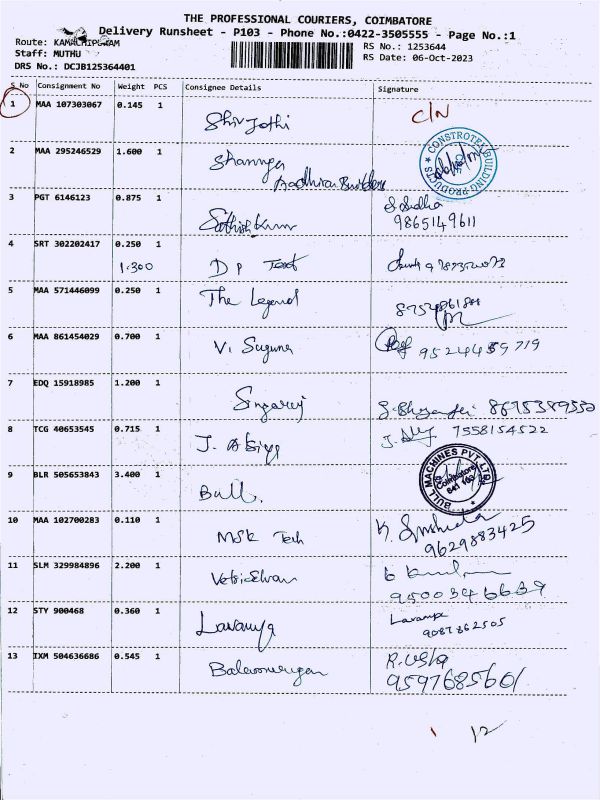 THE PROFESSIONAL COURIERS, COIMBATORE
Delivery Runsheet - P103 - Phone No.:0422-3505555 - Page No.:1
Route: KAMACHIPURAM
RS No.: 1253644
Staff: MUTHU
RS Date: 06-Oct-2023
DRS No.: DCJB125364401
S No Consignment No Weight PCS Consignee Details Signature
1 MAA 107303067 0.145 1 Shiv Jothi C/N
2 MAA 295246529 1.600 1 Aadhira Builders
CONSTROTEK BUILDING PRODUCTS
3 PGT 6146123 0.875 1 Sathish Kumar
9865149611
4 SRT 302202417 0.250 1 D P Text
1.300
5 MAA 571446099 0.250 1 The Legend
6 MAA 861454029 0.700 1 V. Suguna
9524459719
7 EDQ 15918985 1.200 1 Singaraj
8675389550
8 TCG 40653545 0.715 1 J.
7558154522
9 BLR 505653843 3.400 1 Bull.
BULL MACHINES PVT LTD
Coimbatore
641 103
10 MAA 102700283 0.110 1 MSK Tech K.
9629883425
11 SLM 329984896 2.200 1 Vetriselvan
9500346639
12 STY 900468 0.360 1 Lavanya Lavanya
9087862505
13 IXM 504636686 0.545 1 Balamurugan R. Usha
9597685601
1 12